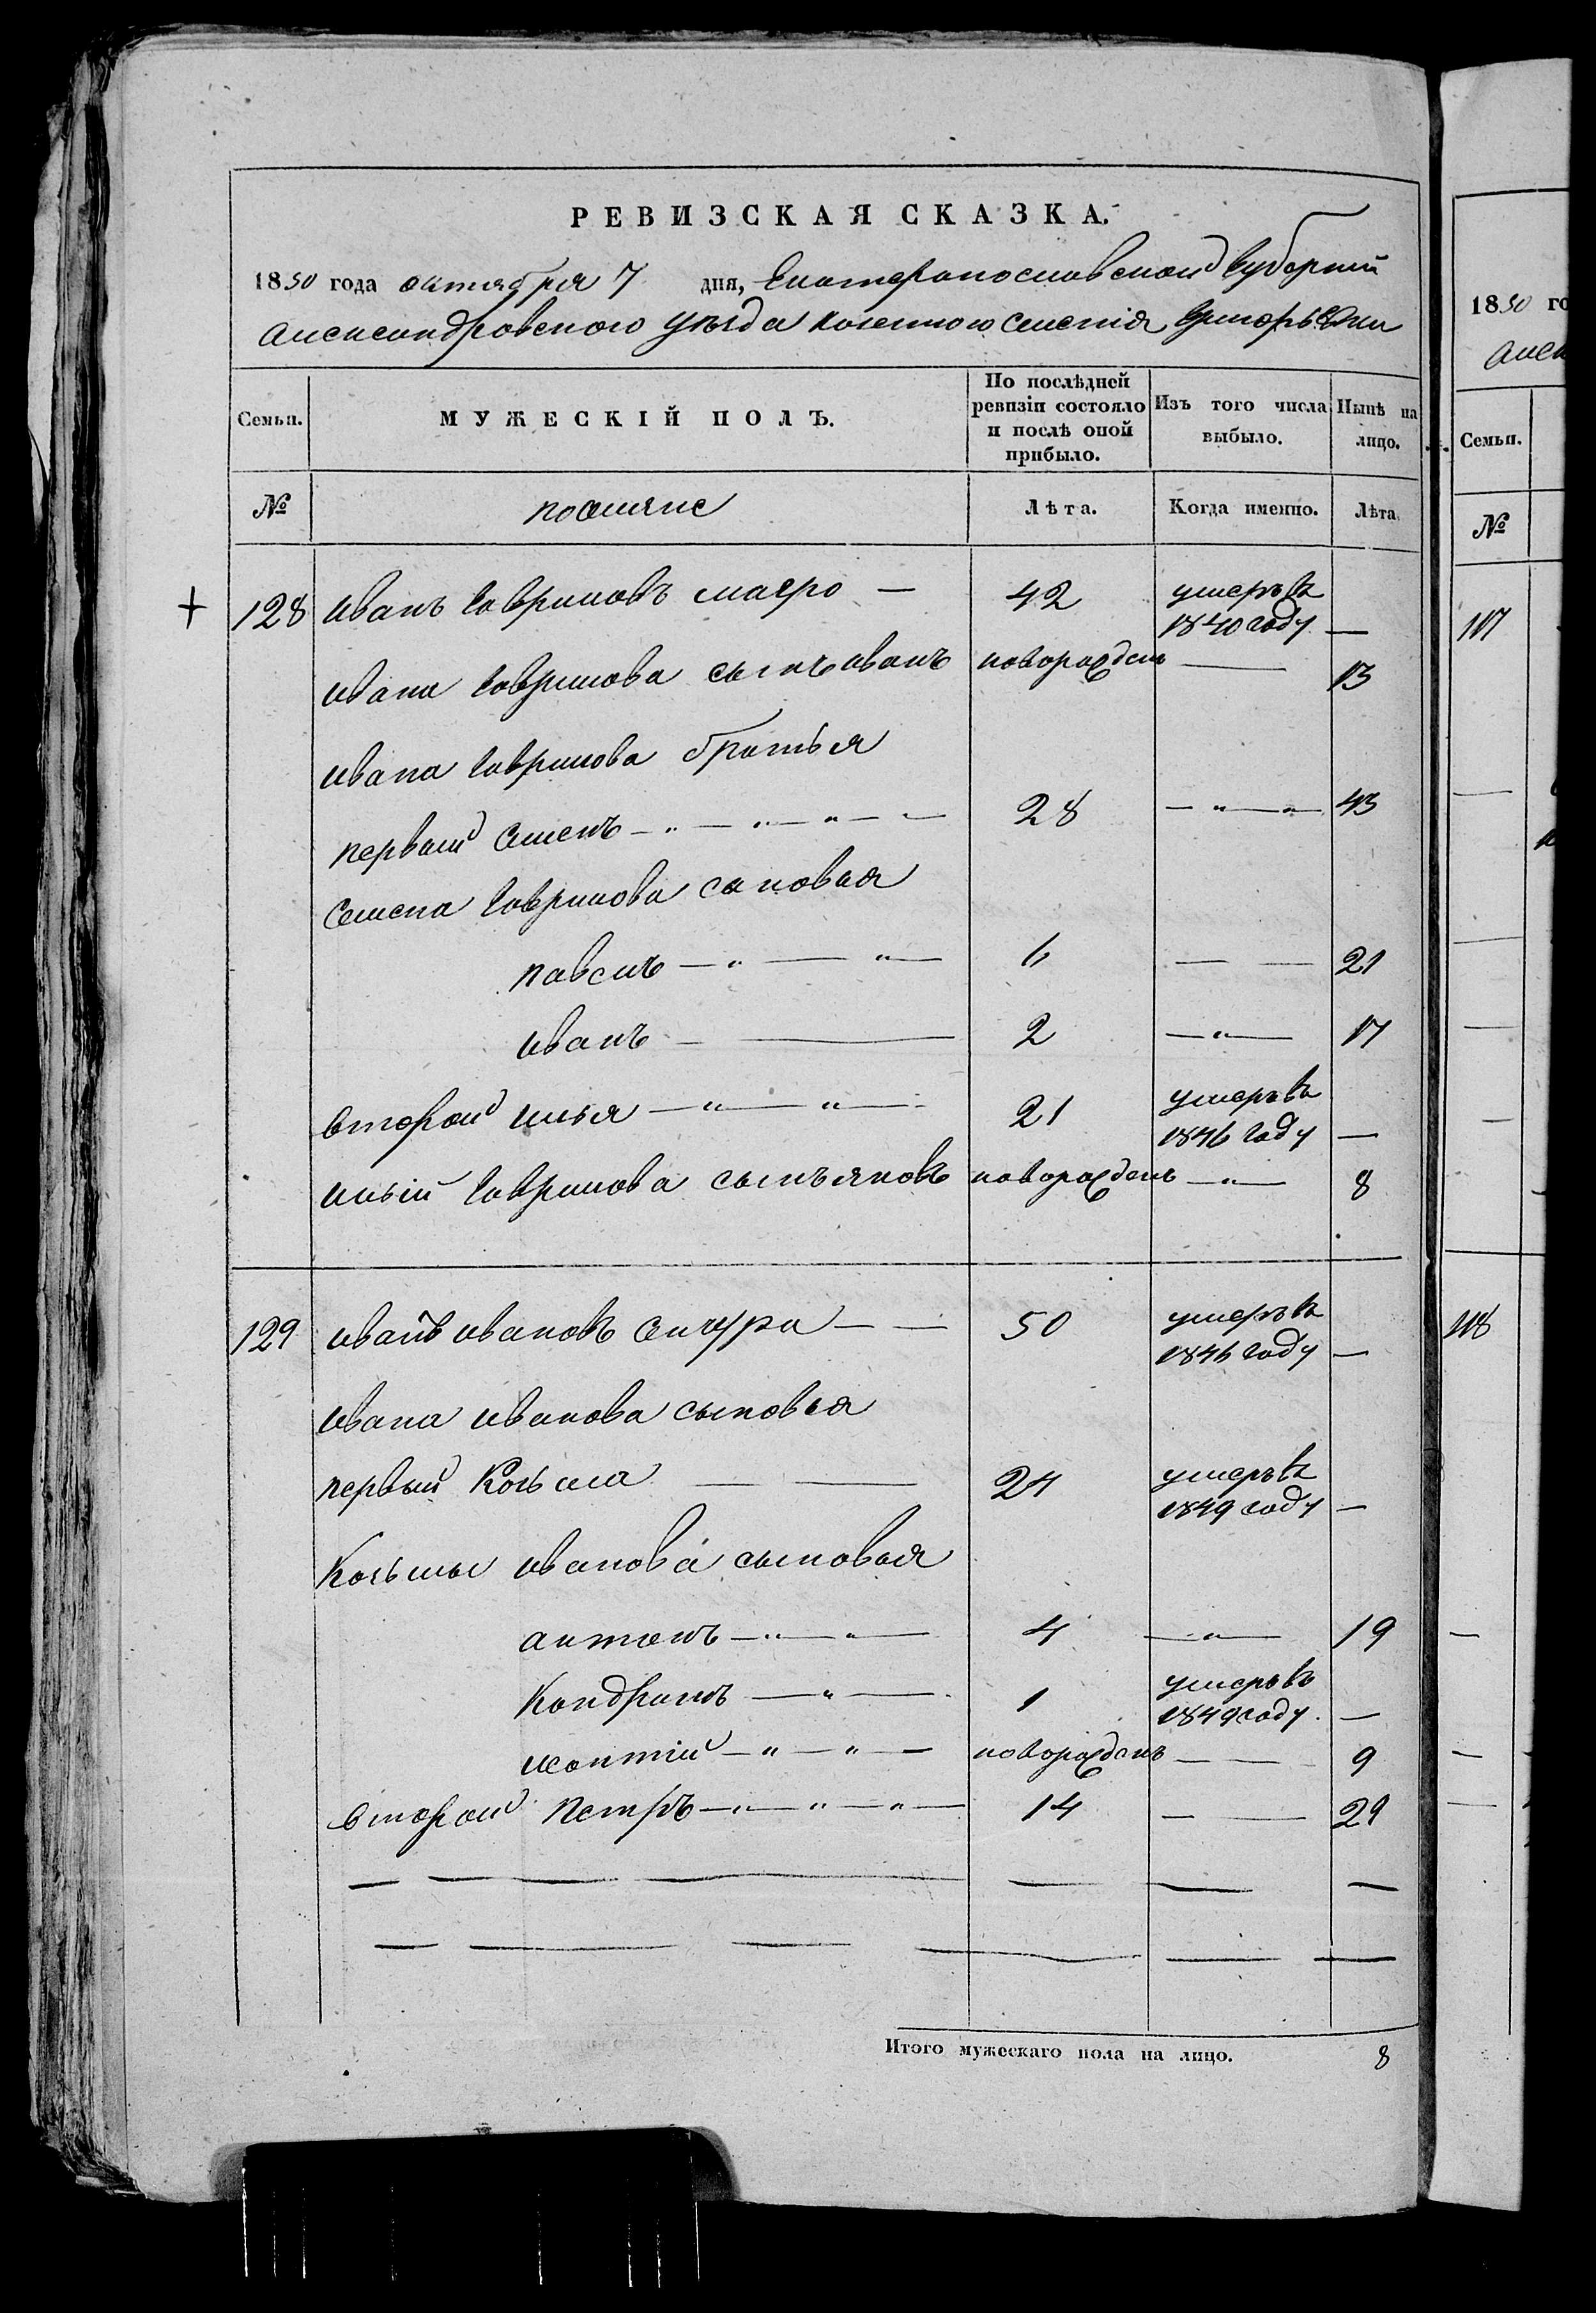 РЕВИЗСКАЯ СКАЗКА.
1850 года октября 7 дня, Екатеринославской Губернии
Александровского уезда казенного селения Григорьевки
Семьи. МУЖЕСКІЙ ПОЛЪ. По послѣдней ревизіи состояло и послѣ оной прибыло. Изъ того числа выбыло. Нынѣ на лицо.
№ поселяне Лѣта. Когда именно. Лѣта
128 иванъ Гавриловъ 42 умеръ въ 1840 году —
ивана Гаврилова сынъ иванъ новорожденъ — 13
ивана Гаврилова братья
первый Семенъ 28 — 43
Семена Гаврилова сыновья
павелъ 6 — 21
иванъ 2 — 17
второй илья 21 умеръ въ 1846 году —
ильи Гаврилова сынъ яковъ новорожденъ — 8
129 иванъ ивановъ 50 умеръ въ 1846 году —
ивана иванова сыновья
первый Козьма 24 умеръ въ 1849 году —
Козьмы иванова сыновья
антонъ 4 — 19
Кондратъ 1 умеръ въ 1849 году. —
леонтий новорожденъ — 9
второй петръ 14 — 29
Итого мужескаго пола на лицо. 8
1850 го
Алек
Семьи.
№
117
118